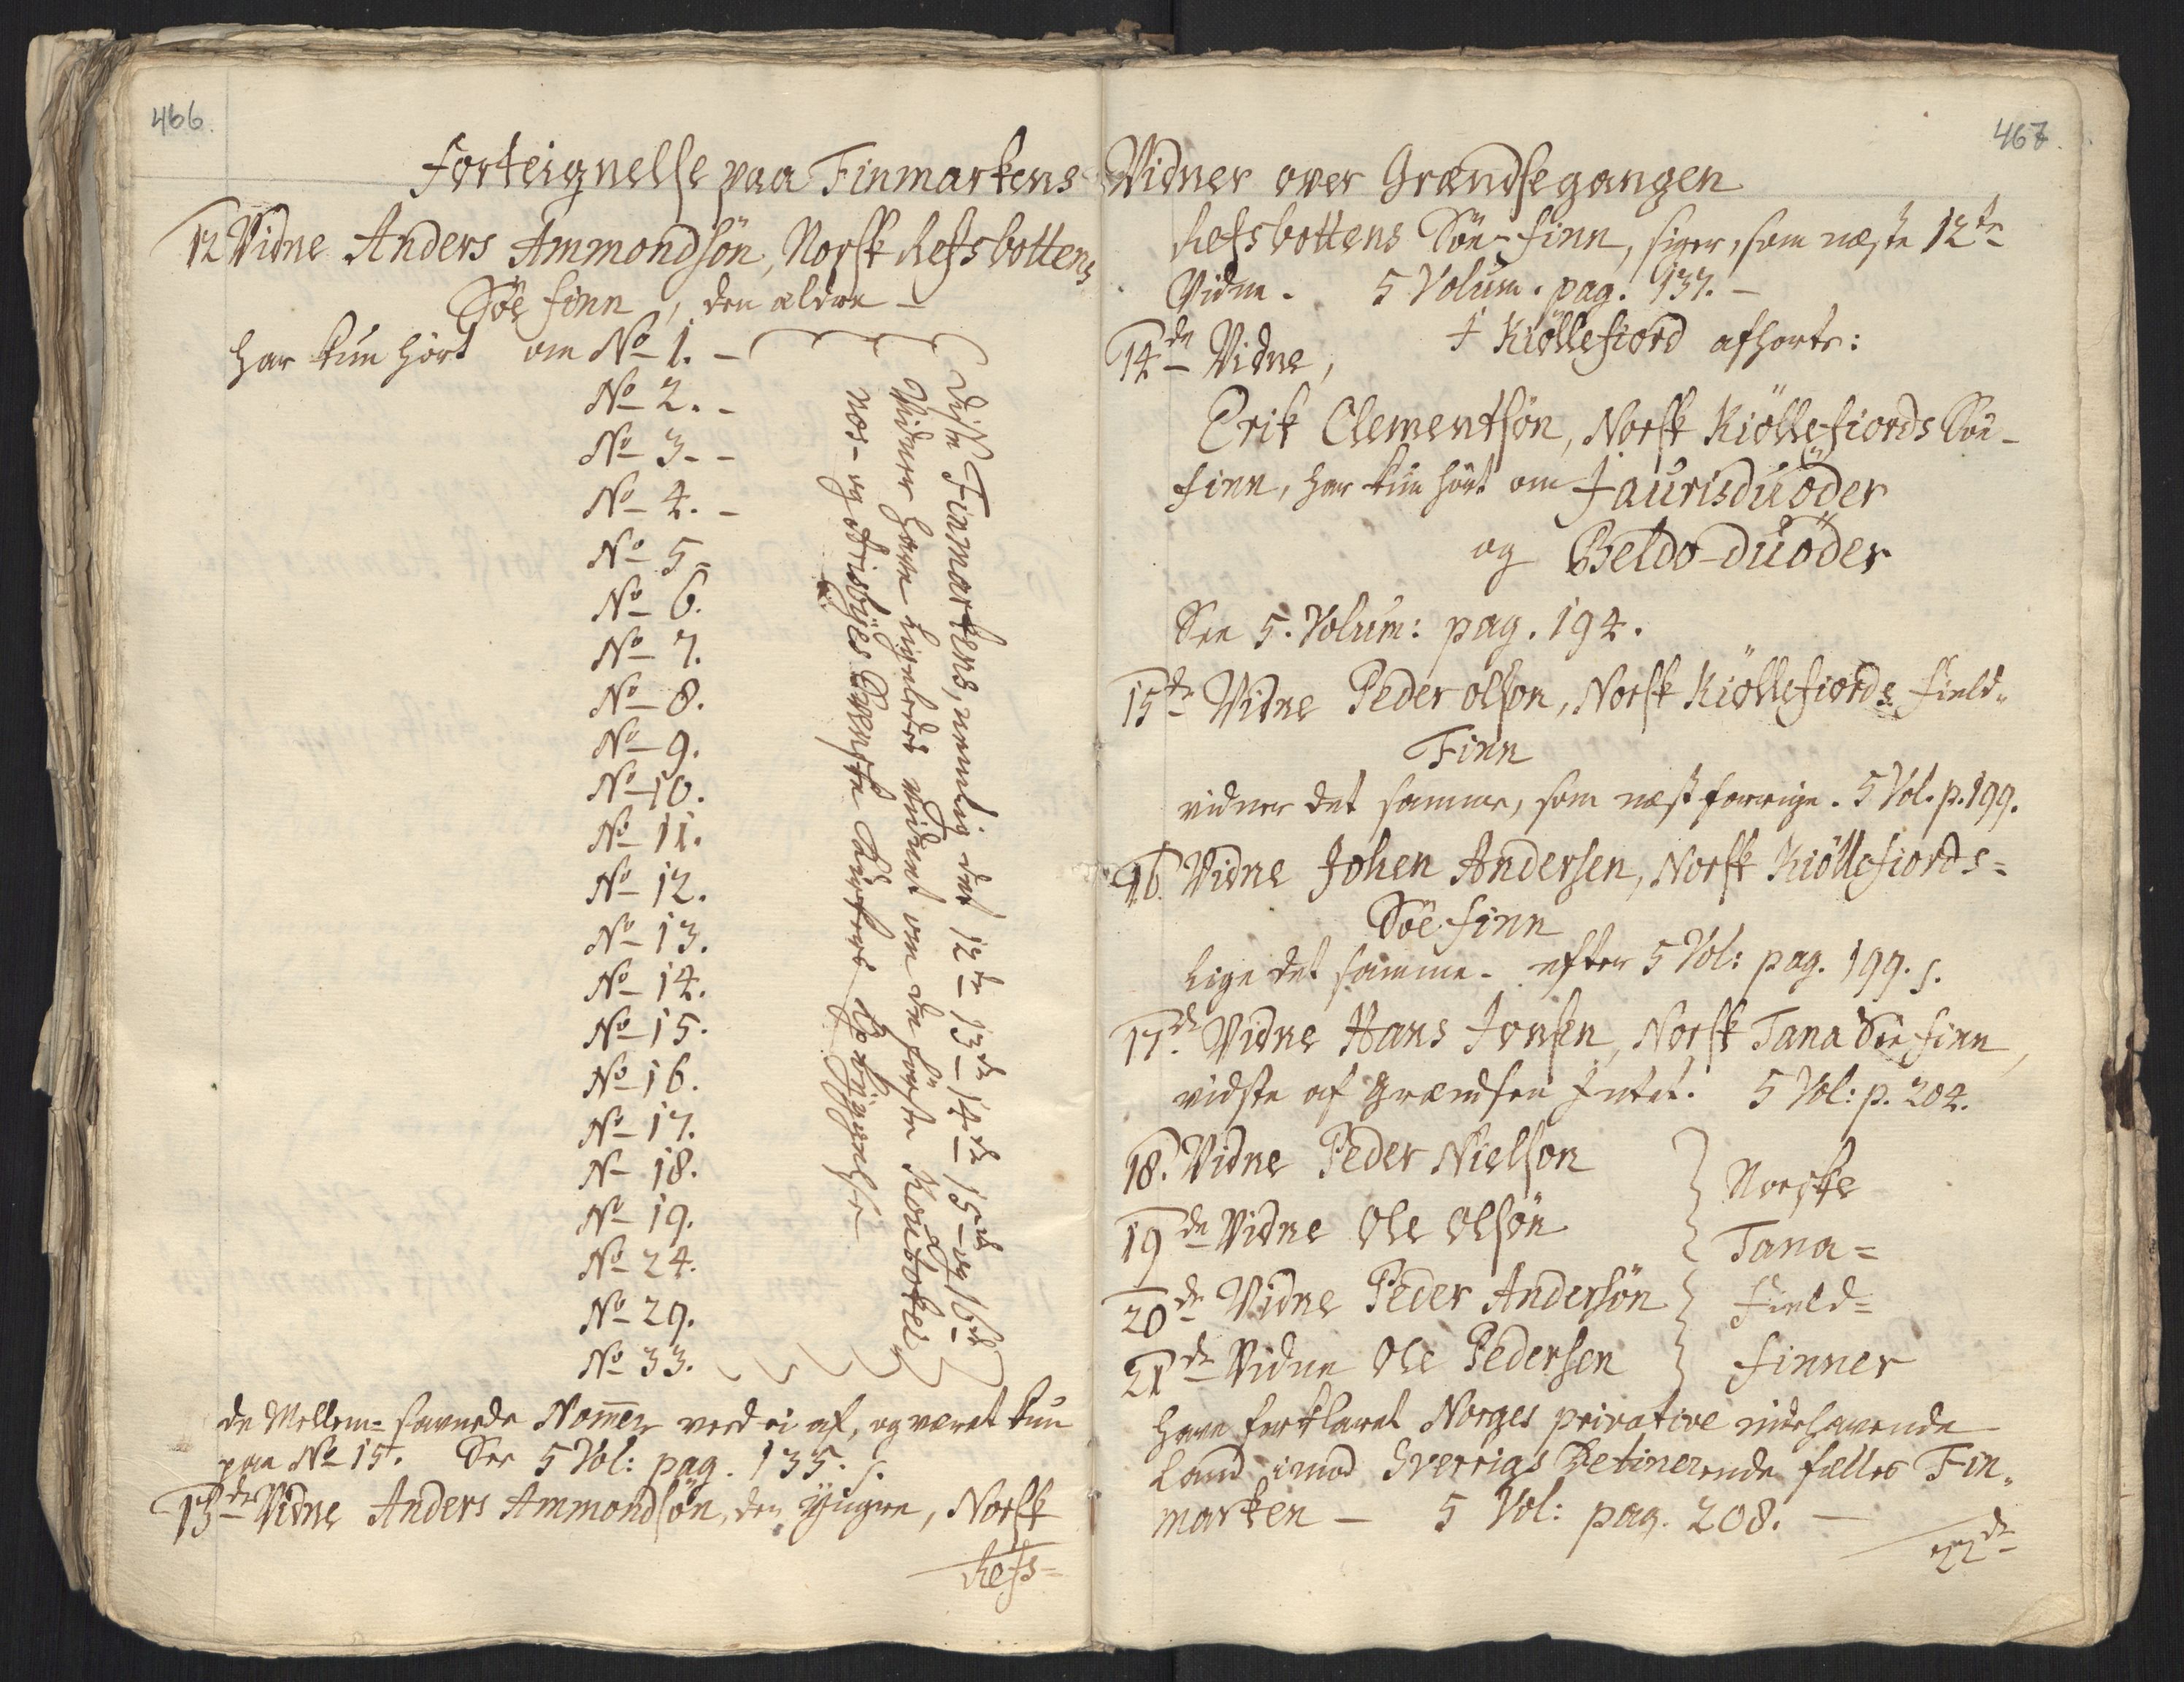 466.
Forteignelse paa Finmarkens
12 Vidne Anders Ammondsön, Norsk Refsbottens
Söe finn, den ældre –
har kun hört om No 1. –
No 2. –
No 3. –
No 4. –
No 5 =
No 6.
No 7.
No 8.
No 9.
No 10.
No 11.
No 12.
No 13.
No 14.
No 15.
No 16.
No 17.
N 18.
No 19.
No 24.
No 29.
No 33.
disse Finmarkens, nemlig det 12de 13de 14de 15de og 16de
Vidner have ligeledes vidnet om de förste Koutokei
nos – og Afvisbyes Svenske
de Mellem= savnede Nomer ved ei af, og været kun
paa No 15. See 5 Vol: pag. 135. s.
13de Vidne Anders Ammondsön, den Yngre, Norsk
Refs=
467.
Vidner over Grændsegangen
Refsbottens Söe-finn, siger, som næste 12te
Vidne. 5 Volum. pag. 137. –
I Kiöllefiord afhørte:
14de Vidne,
Erik Clementsön, Norsk Kiöllefiords Söe-
finn, har kun hört om Jaurisduöder
og Beldo-duöder
See 5. Volum: pag. 194.
15de Vidne Peder olson, Norsk Kiöllefiords Field=
Finn
vidner det samme, som næst forrige. 5 Vol. p. 199.
16. Vidne Johen Andersen, Norsk Kiöllefiords=
Söe finn
lige det samme – efter 5 Vol: pag. 199. s.
17de Vidne Hans Jonsen, Norsk Tana Söe finn,
vidste af Grændsen Intet. 5 Vol: p. 204.
18. Vidne Peder Nielson
19de Vidne Ole Olsön
20de Vidne Peder Andersön
21de Vidne Ole Pedersen
Norske
Tana=
Field=
finner
have forklaret Norges privative indehavende
Land imod Sverrigs Detinerende fælles Fin=
marken – 5 Vol: pag. 208. –
22de